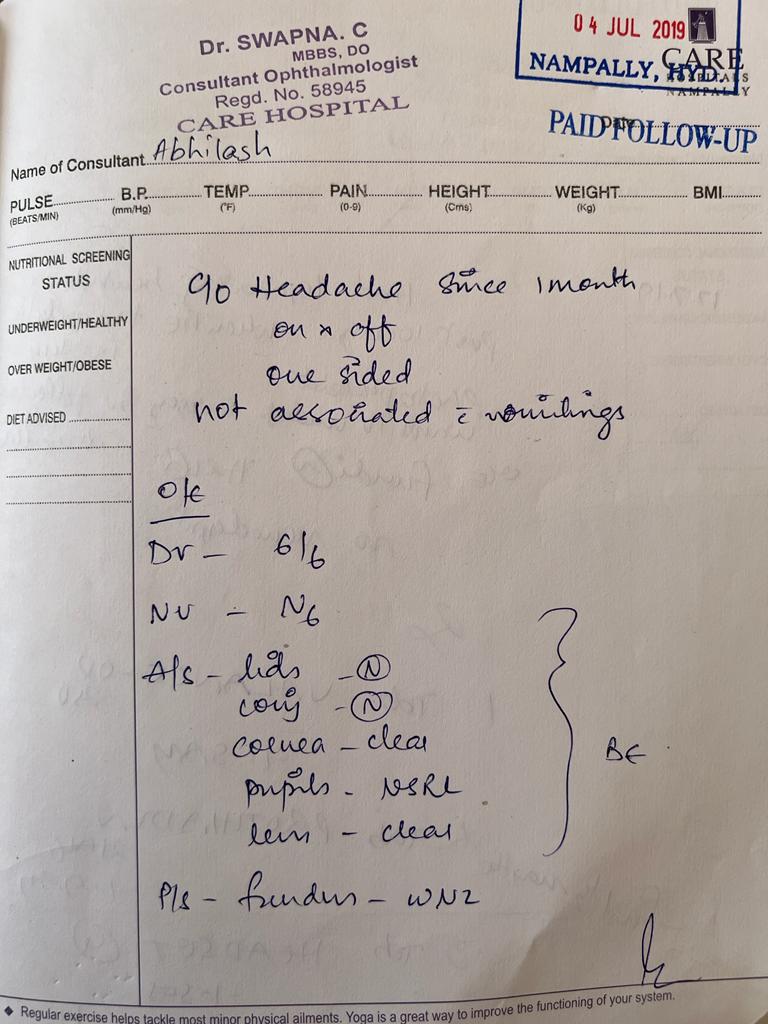 Dr. SWAPNA. C
MBBS, DO
Consultant Ophthalmologist
Regd. No. 58945
CARE HOSPITAL
04 JUL 2019
NAMPALLY, HYD.
CARE
HOSPITALS
NAMPALLY
Date
PAID FOLLOW-UP
Name of Consultant Abhilash
PULSE B.P. TEMP. PAIN HEIGHT WEIGHT BMI
(BEATS/MIN) (mm/Hg) (°F) (0-9) (Cms) (Kg)
NUTRITIONAL SCREENING
STATUS
UNDERWEIGHT/HEALTHY
OVER WEIGHT/OBESE
DIET ADVISED
C/o Headache since 1 month
on & off
one sided
not associated c̄ vomitings
O/E
DV - 6/6
NV - N6
A/s - lids - N
conj - N
cornea - clear
pupils - NSRL
lens - clear
BE
P/s - fundus - WNL
◆ Regular exercise helps tackle most minor physical ailments. Yoga is a great way to improve the functioning of your system.